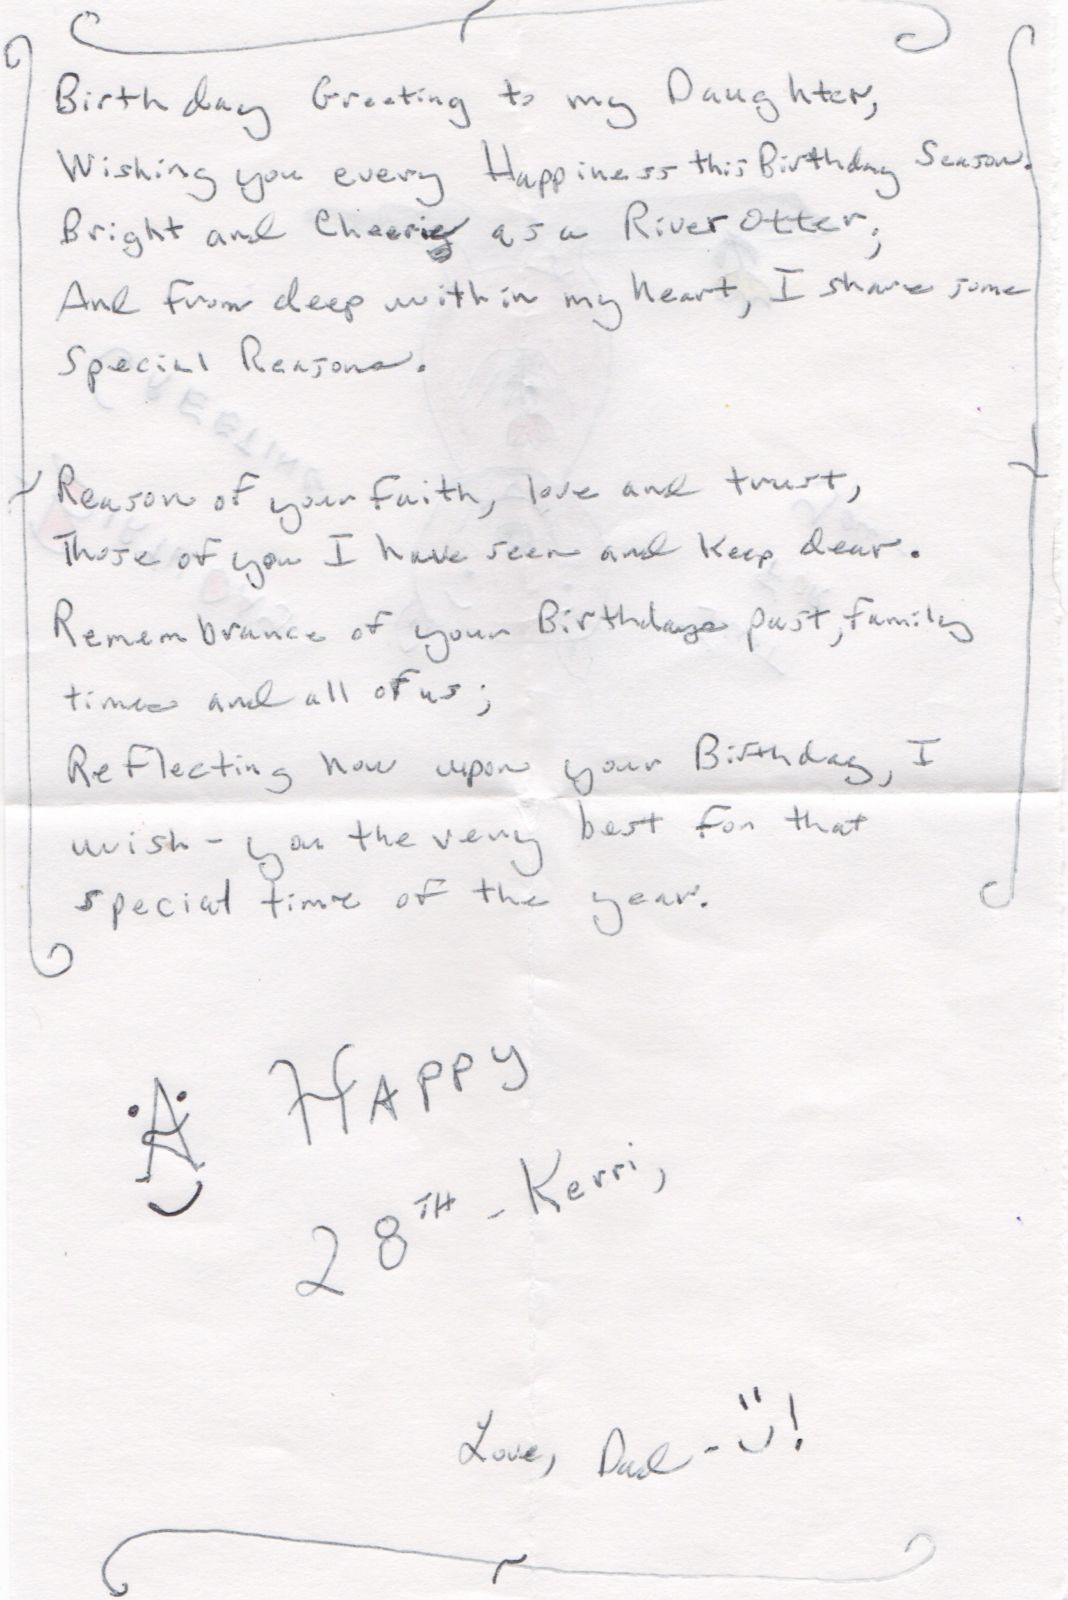 Birthday Greeting to my Daughter,
Wishing you every Happiness this Birthday Season.
Bright and Cheery as a River Otter;
And from deep within my heart, I share some
Special Reasons.
Reason of your faith, love and trust,
Those of you I have seen and keep dear.
Remembrance of your Birthdays past, family
times and all of us;
Reflecting now upon your Birthday, I
wish - you the very best for that
special time of the year.
A Happy
28TH - Kerri,
Love, Dad - !